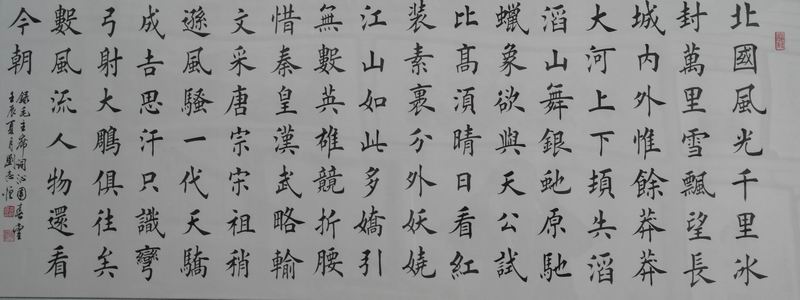 北國風光千里冰
封萬里雪飄望長
城内外惟餘莽莽
大河上下頓失滔
滔山舞銀虵原馳
蠟象欲與天公試
比髙須晴日看紅
装素裹分外妖嬈
江山如此多嬌引
無數英雄競折腰
惜秦皇漢武略輸
文采唐宗宋祖稍
遜風騷一代天驕
成吉思汗只識彎
弓射大鵬俱往矣
數風流人物還看
今朝
録毛主席詞沁園春雪
壬辰夏月劉志恒